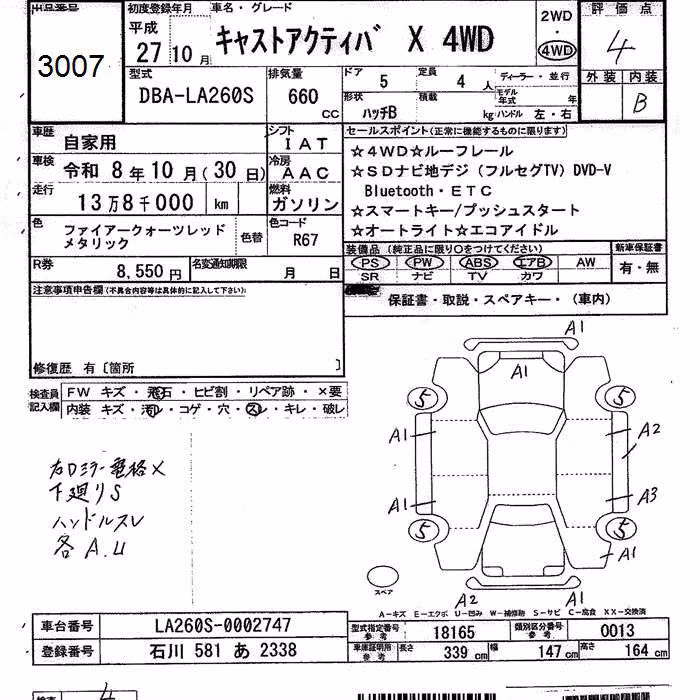 出品番号
3007
初度登録年月
平成
27 10 月
車名・グレード
キャストアクティバ X 4WD
2WD
4WD
評価点
4
外装 内装
B
型式
DBA-LA260S
排気量
660
CC
ドア
5
定員
4 人
ディーラー・並行
形状
ハッチB
積載
kg
モデル年式
年
ハンドル 左・右
車歴
自家用
シフト
IAT
車検
令和 8 年 10 月 (30 日)
冷房
AAC
走行
13万8千000 km
燃料
ガソリン
色
ファイアークォーツレッド
メタリック
色替
色コード
R67
R券
8,550 円
名変通知期限
月 日
セールスポイント(正常に機能するものに限ります)
☆4WD☆ルーフレール
☆SDナビ地デジ(フルセグTV) DVD-V
Bluetooth・ETC
☆スマートキー/プッシュスタート
☆オートライト☆エコアイドル
装備品 (純正品に限り○をつけてください)
新車保証書
PS PW ABS エアB AW
SR ナビ TV カワ
有・無
保証書・取説・スペアキー・(車内)
注意事項申告欄(不具合内容等は具体的に記入して下さい)
修復歴 有〔箇所 〕
検査員
記入欄
FW キズ・飛石・ヒビ割・リペア跡・×要
内装 キズ・汚レ・コゲ・穴・スレ・キレ・破レ
右Dミラー電格×
下廻りS
ハンドルスレ
各A.U
A1
A1
5
5
A1
A2
A1
A3
5
5
A1
スペア
A2
A1
A-キズ E-エクボ U-凹み W-補修跡 S-サビ C-腐食 XX-交換済
車台番号
LA260S-0002747
型式指定番号
参考
18165
類別区分番号
参考
0013
登録番号
石川 581 あ 2338
車庫証明用
参考
長さ
339 cm
幅
147 cm
高さ
164 cm
検査
4